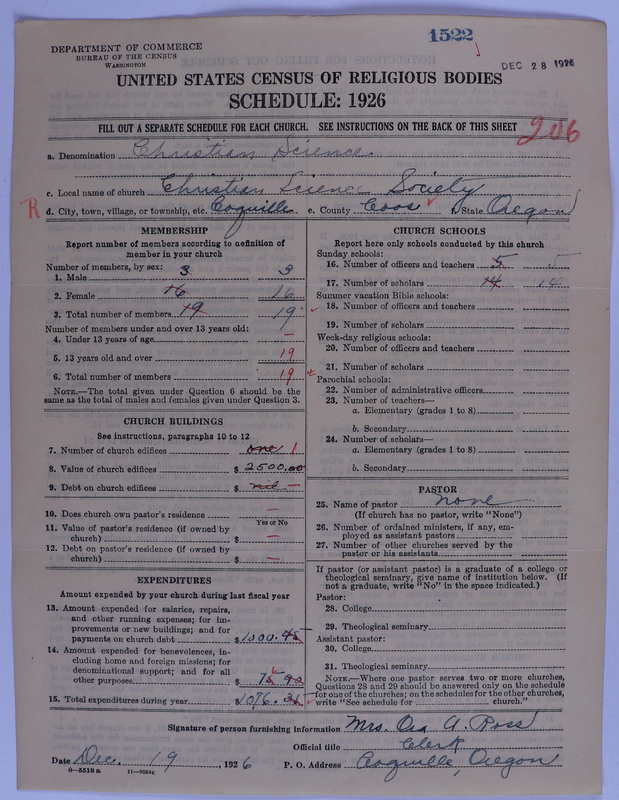 1522
DEC 28 1926
DEPARTMENT OF COMMERCE
BUREAU OF THE CENSUS
WASHINGTON
UNITED STATES CENSUS OF RELIGIOUS BODIES
SCHEDULE: 1926
FILL OUT A SEPARATE SCHEDULE FOR EACH CHURCH. SEE INSTRUCTIONS ON THE BACK OF THIS SHEET
206
a. Denomination Christian Science
c. Local name of church Christian Science Society
R d. City, town, village, or township, etc. Coquille e. County Coos State Oregon
MEMBERSHIP
Report number of members according to definition of
member in your church
Number of members, by sex:
1. Male 3 3
2. Female 16 16
3. Total number of members 19 19
Number of members under and over 13 years old:
4. Under 13 years of age —
5. 13 years old and over 19
6. Total number of members 19
NOTE.—The total given under Question 6 should be
same as the total of males and females given under Question 3.
CHURCH BUILDINGS
See instructions, paragraphs 10 to 12
7. Number of church edifices one 1
8. Value of church edifices $ 2500.00
9. Debt on church edifices $ nil —
10. Does church own pastor's residence —
Yes or No
11. Value of pastor's residence (if owned by
church) $ —
12. Debt on pastor's residence (if owned by
church) $ —
EXPENDITURES
Amount expended by your church during last fiscal year
13. Amount expended for salaries, repairs,
and other running expenses; for im-
provements or new buildings; and for
payments on church debt $ 1000.45
14. Amount expended for benevolences, in-
cluding home and foreign missions; for
denominational support; and for all
other purposes $ 75.90
15. Total expenditures during year $ 1076.35
CHURCH SCHOOLS
Report here only schools conducted by this church
Sunday schools:
16. Number of officers and teachers 5 5
17. Number of scholars 14 14
Summer vacation Bible schools:
18. Number of officers and teachers
19. Number of scholars
Week-day religious schools:
20. Number of officers and teachers
21. Number of scholars
Parochial schools:
22. Number of administrative officers
23. Number of teachers—
a. Elementary (grades 1 to 8)
b. Secondary
24. Number of scholars—
a. Elementary (grades 1 to 8)
b. Secondary
PASTOR
25. Name of pastor none
(If church has no pastor, write "None")
26. Number of ordained ministers, if any, em-
ployed as assistant pastors
27. Number of other churches served by the
pastor or his assistants
If pastor (or assistant pastor) is a graduate of a college or
theological seminary, give name of institution below. (If
not a graduate, write "No" in the space indicated.)
Pastor:
28. College
29. Theological seminary
Assistant pastor:
30. College
31. Theological seminary
NOTE.—Where one pastor serves two or more churches,
Questions 28 and 29 should be answered only on the schedule
for one of the churches; on the schedules for the other churches,
write "See schedule for church."
Signature of person furnishing information Mrs. Ora A. Ross
Official title Clerk
Date Dec. 19, 1926 P. O. Address Coquille, Oregon
8—5518 a